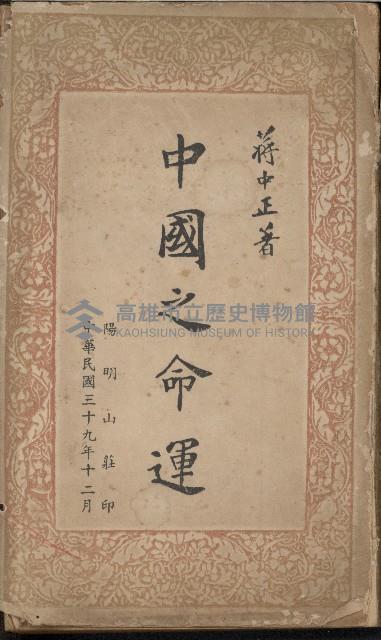 蔣中正著
中國之命運
陽明山莊印
中華民國三十九年十二月
高雄市立歷史博物館
KAOHSIUNG MUSEUM OF HISTORY